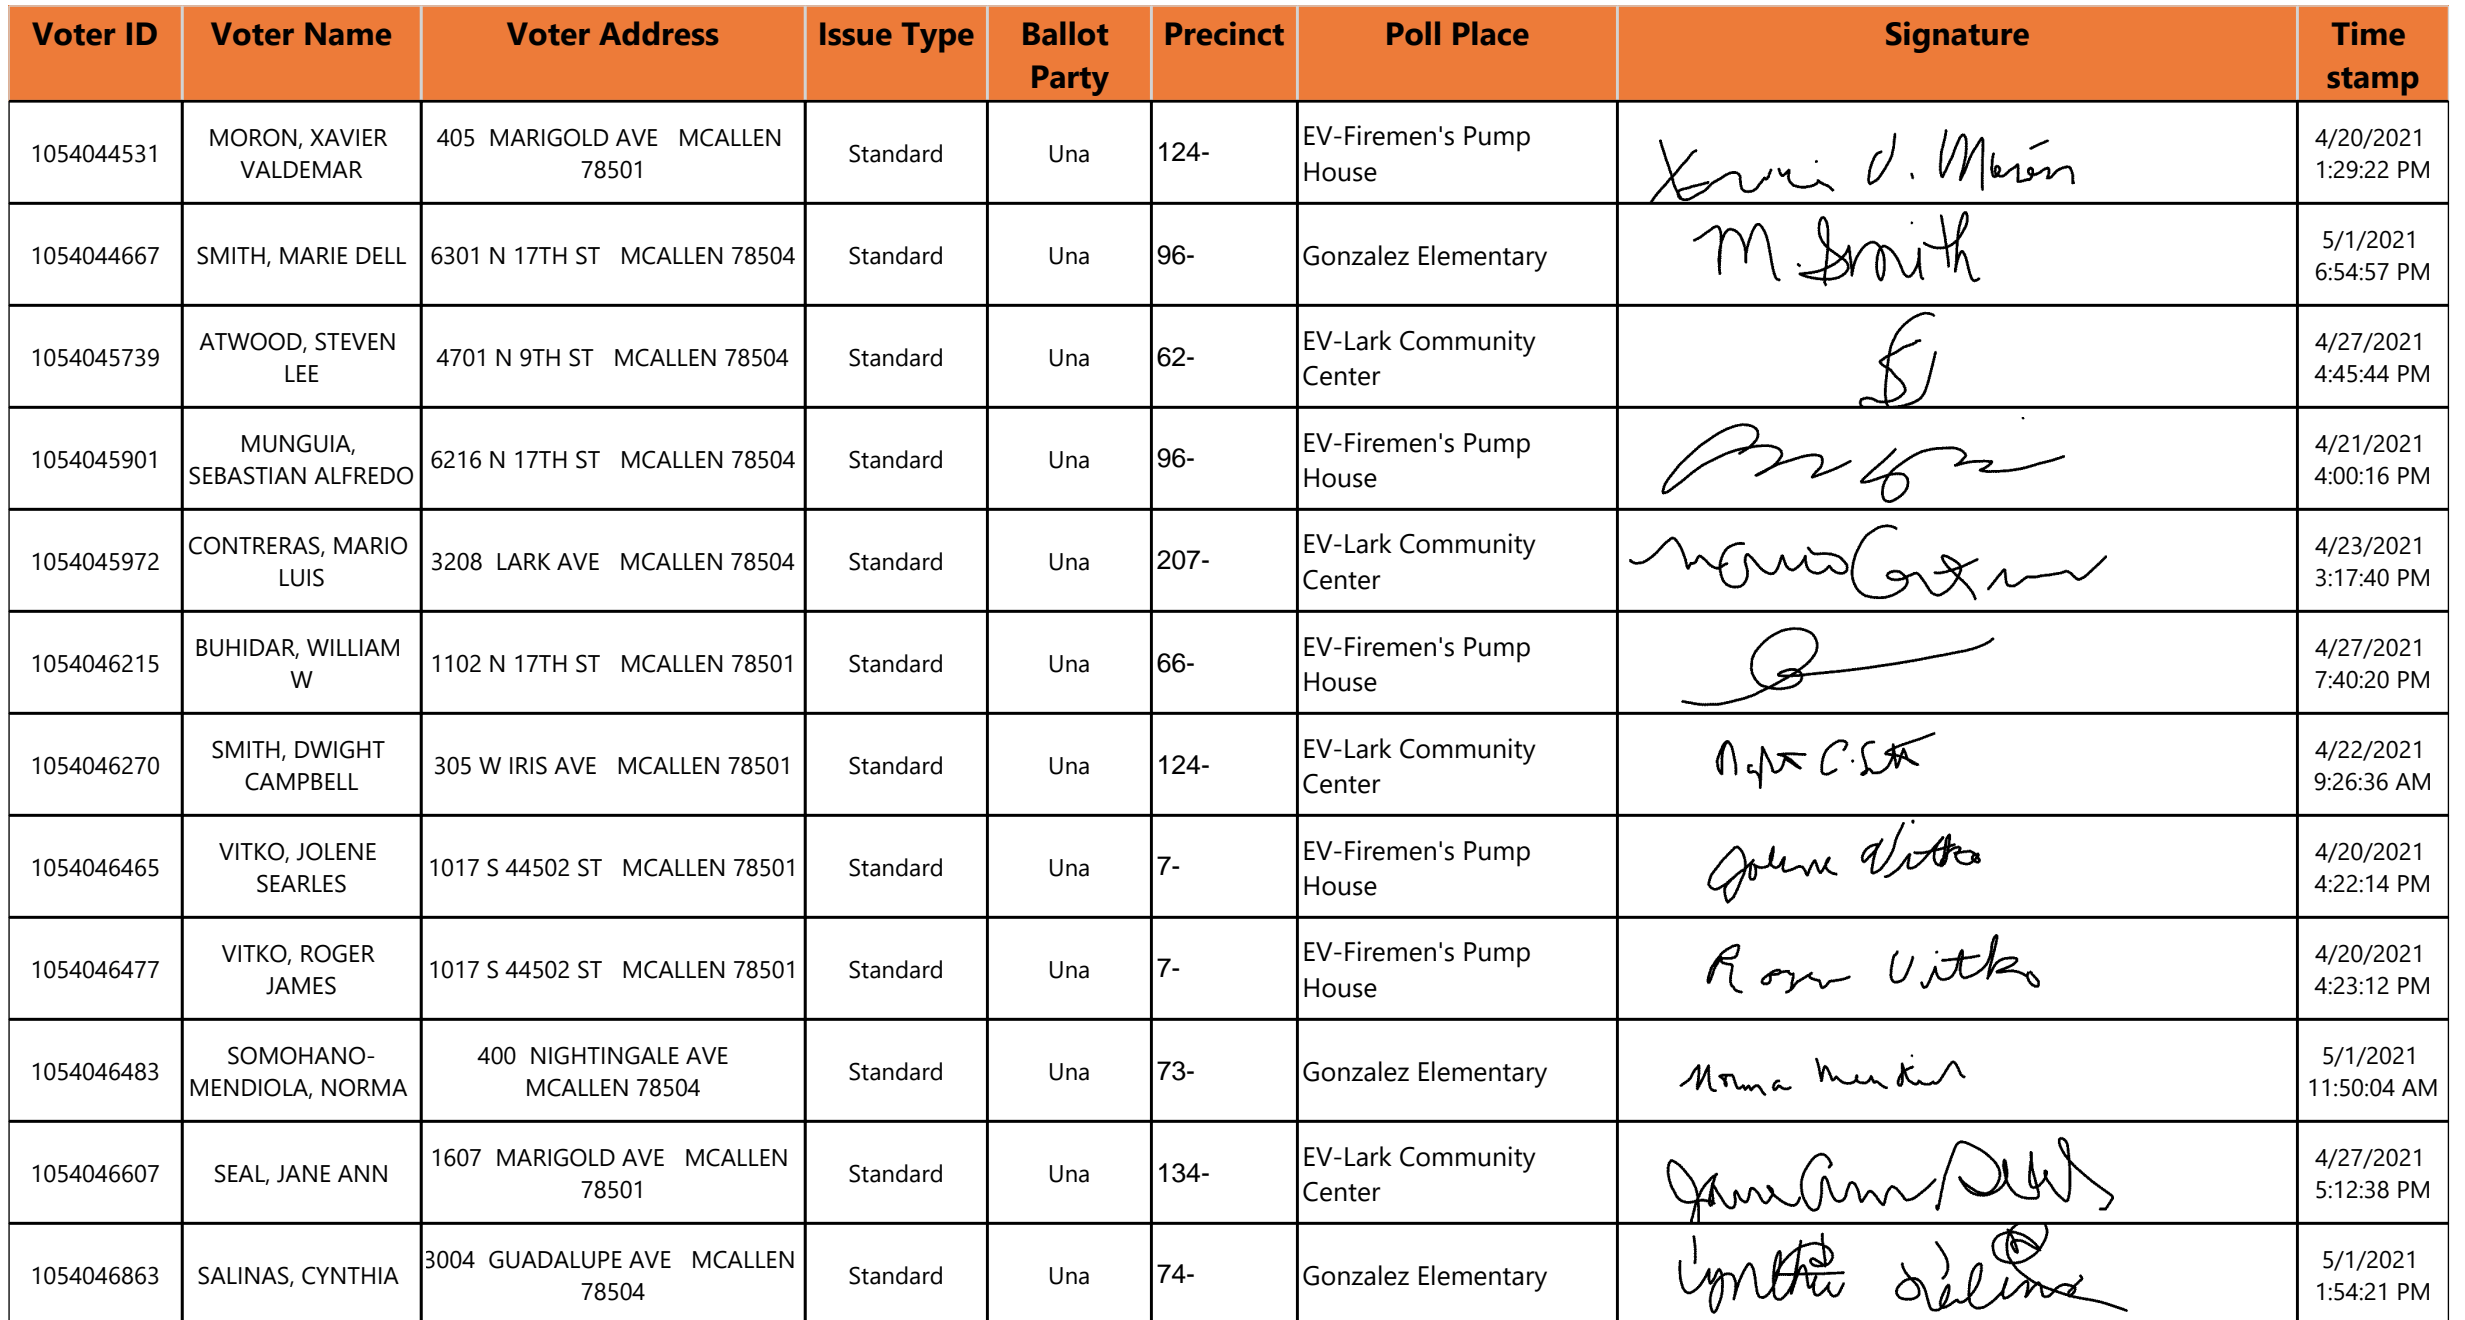 Voter ID Voter Name Voter Address Issue Type Ballot Party Precinct Poll Place Signature Time stamp
1054044531 MORON, XAVIER VALDEMAR 405 MARIGOLD AVE MCALLEN 78501 Standard Una 124- EV-Firemen's Pump House 4/20/2021 1:29:22 PM
1054044667 SMITH, MARIE DELL 6301 N 17TH ST MCALLEN 78504 Standard Una 96- Gonzalez Elementary M. Smith 5/1/2021 6:54:57 PM
1054045739 ATWOOD, STEVEN LEE 4701 N 9TH ST MCALLEN 78504 Standard Una 62- EV-Lark Community Center 4/27/2021 4:45:44 PM
1054045901 MUNGUIA, SEBASTIAN ALFREDO 6216 N 17TH ST MCALLEN 78504 Standard Una 96- EV-Firemen's Pump House 4/21/2021 4:00:16 PM
1054045972 CONTRERAS, MARIO LUIS 3208 LARK AVE MCALLEN 78504 Standard Una 207- EV-Lark Community Center 4/23/2021 3:17:40 PM
1054046215 BUHIDAR, WILLIAM W 1102 N 17TH ST MCALLEN 78501 Standard Una 66- EV-Firemen's Pump House 4/27/2021 7:40:20 PM
1054046270 SMITH, DWIGHT CAMPBELL 305 W IRIS AVE MCALLEN 78501 Standard Una 124- EV-Lark Community Center 4/22/2021 9:26:36 AM
1054046465 VITKO, JOLENE SEARLES 1017 S 44502 ST MCALLEN 78501 Standard Una 7- EV-Firemen's Pump House Jolene Vitko 4/20/2021 4:22:14 PM
1054046477 VITKO, ROGER JAMES 1017 S 44502 ST MCALLEN 78501 Standard Una 7- EV-Firemen's Pump House Roger Vitko 4/20/2021 4:23:12 PM
1054046483 SOMOHANO-MENDIOLA, NORMA 400 NIGHTINGALE AVE MCALLEN 78504 Standard Una 73- Gonzalez Elementary Norma 5/1/2021 11:50:04 AM
1054046607 SEAL, JANE ANN 1607 MARIGOLD AVE MCALLEN 78501 Standard Una 134- EV-Lark Community Center Jane Ann 4/27/2021 5:12:38 PM
1054046863 SALINAS, CYNTHIA 3004 GUADALUPE AVE MCALLEN 78504 Standard Una 74- Gonzalez Elementary Cynthia Salinas 5/1/2021 1:54:21 PM